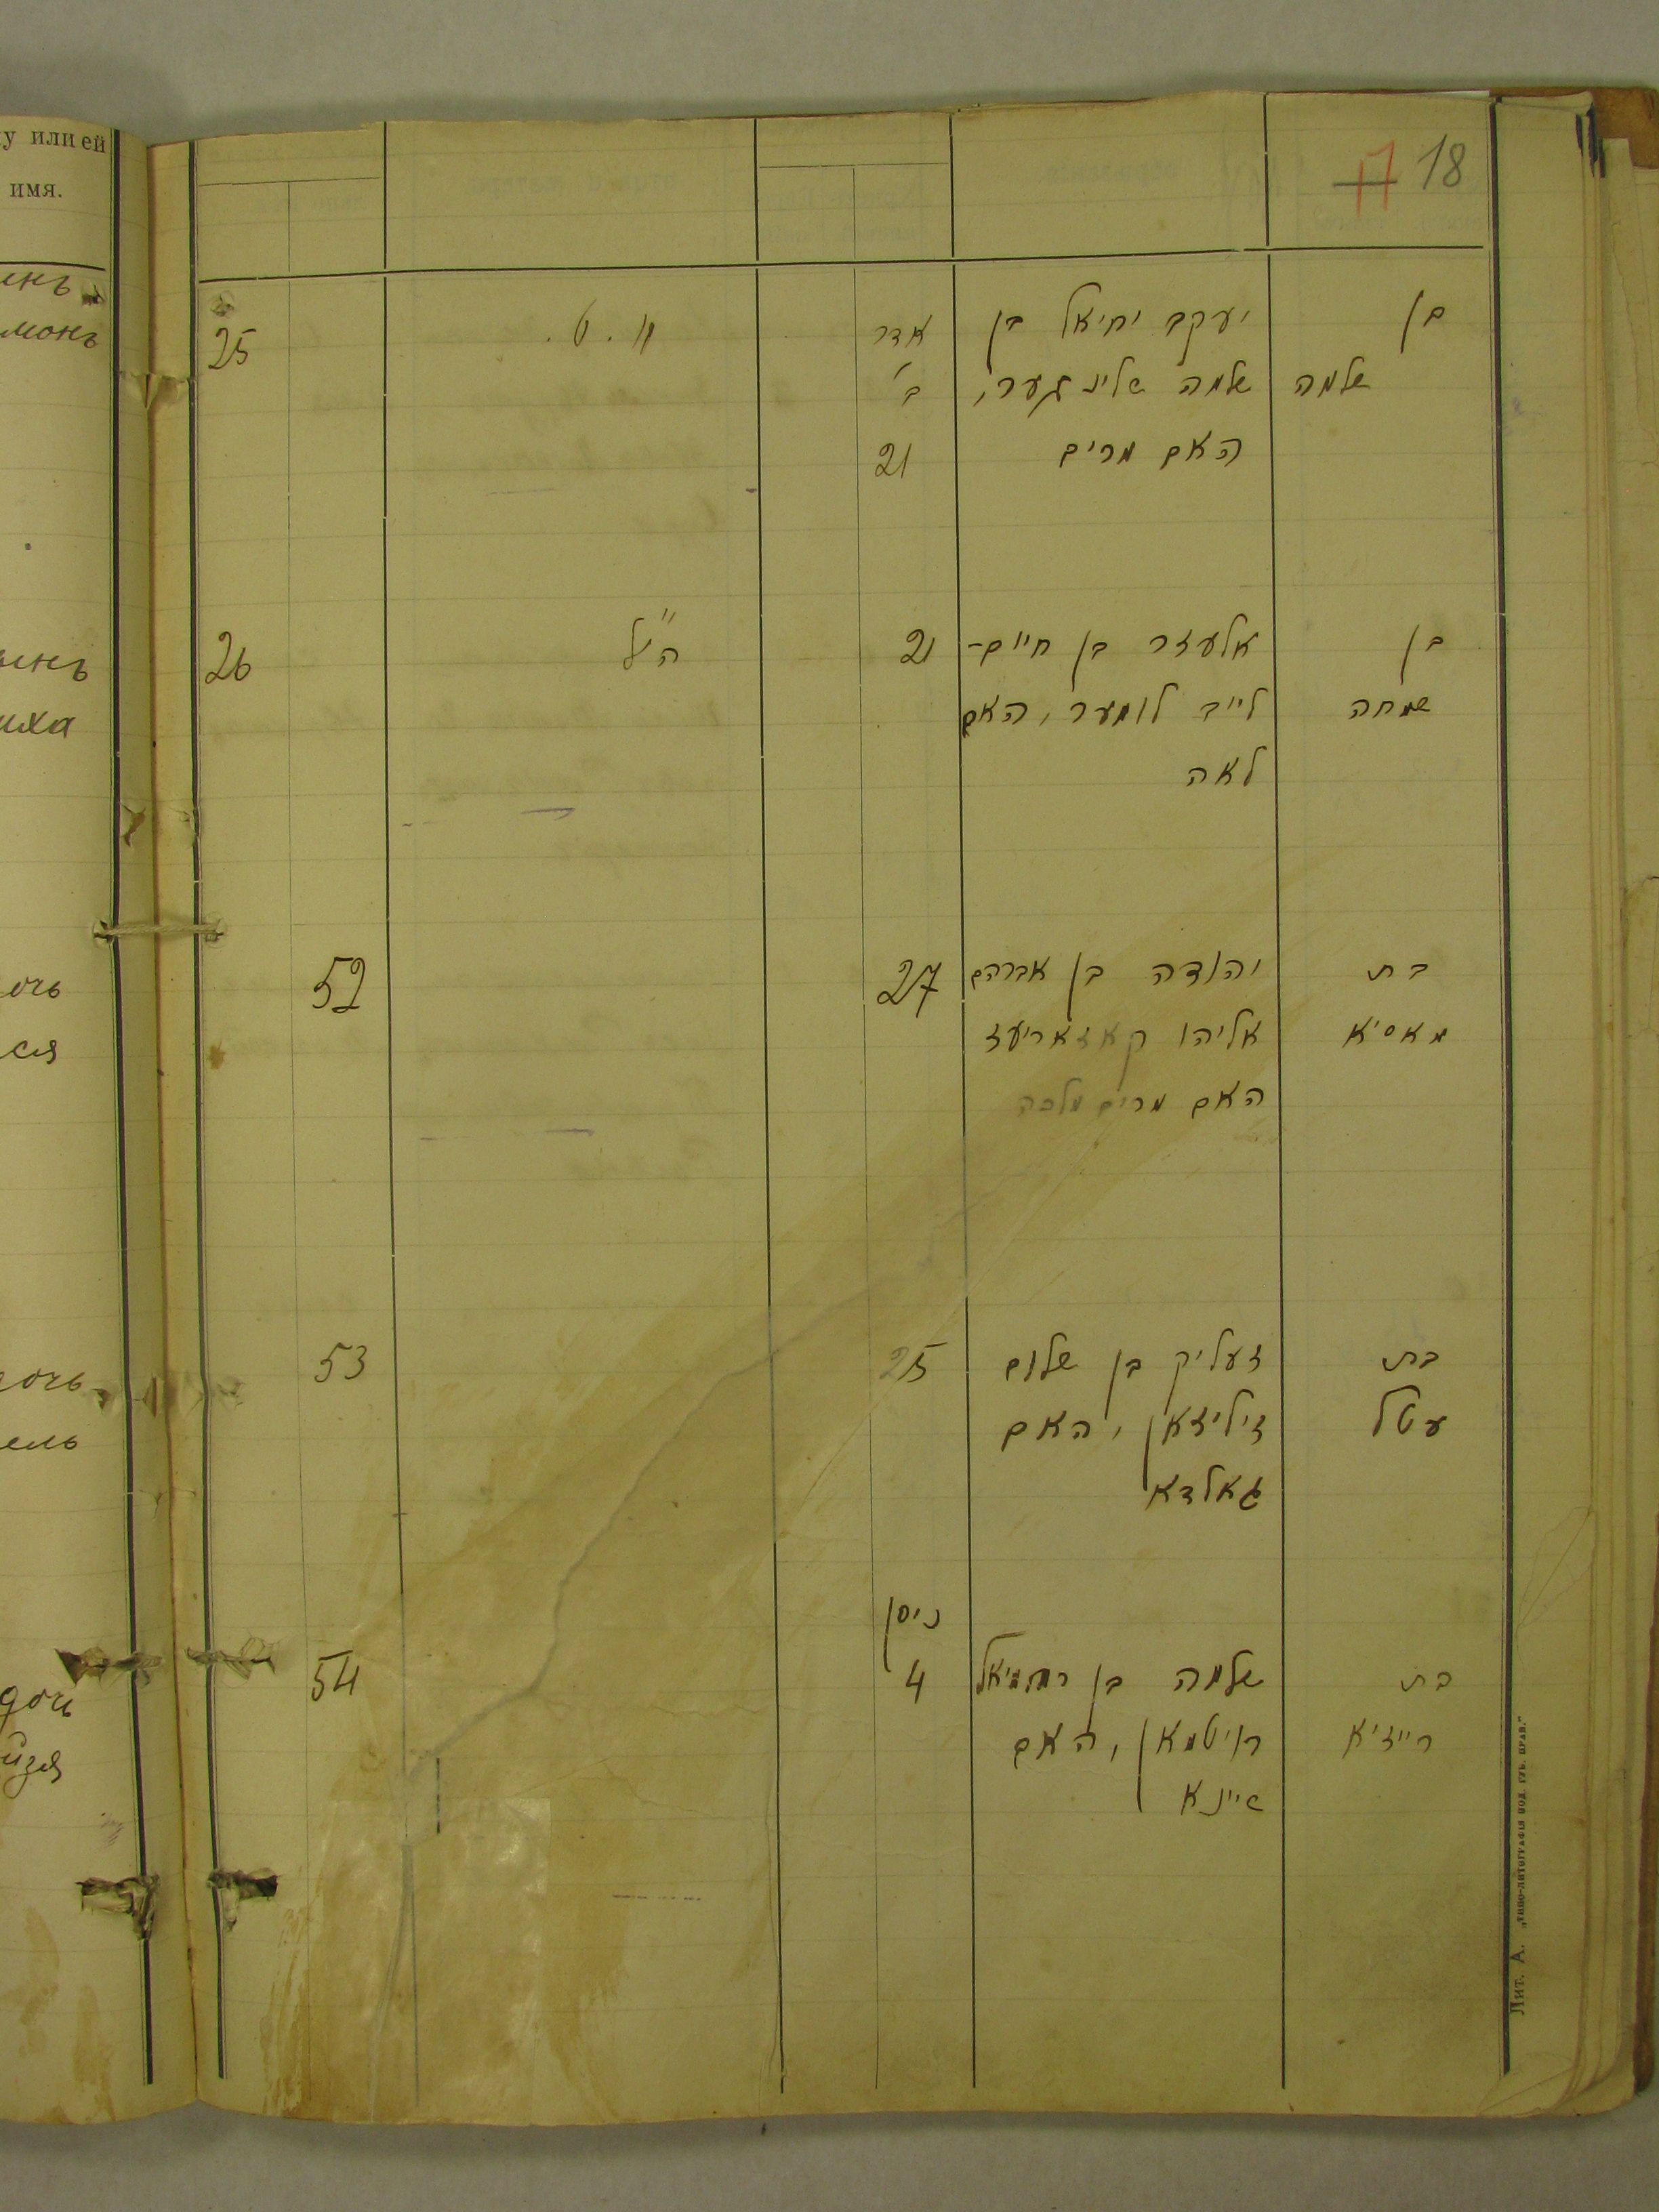 у или ей
имя.
17 18
енъ
монъ
25
.6.11
אדר
ב'
21
יעקב יחיאל בן
שלמה שלינגער,
האם מרים
בן
שלמה
инъ
иха
26
הי"ל
21
אלעזר בן חיים-
לייב לומער, האם
לאה
בן
שמחה
очь
ся
52
27
יהודה בן אברהם
אליהו קאזאריעז
האם מרים מלכה
בת
מאסיא
дочь
ель
53
25
זעליק בן שלום
זיליזאן, האם
גאלדא
בת
עטל
дочь
йзя
54
ניסן
4
שלמה בן ירחמיאל
רויטמאן, האם
שיינא
בת
רייזיא
Лит. А. „Типо-литографія Под. Губ. Прав."